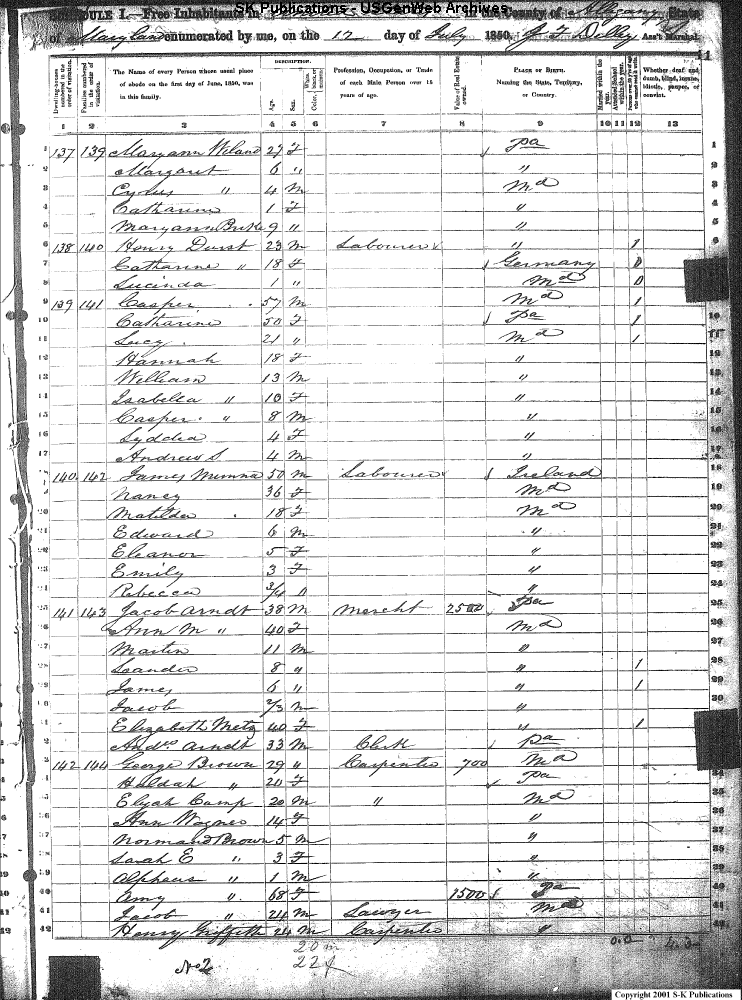 SK Publications - USGenWeb Archives
SCHEDULE I.—Free Inhabitants in in the County of Allegany State
of Maryland enumerated by me, on the 12 day of July 1850. Ass't Marshal.
41
Dwelling-houses numbered in the order of visitation.
Families numbered in the order of visitation.
The Name of every Person whose usual place of abode on the first day of June, 1850, was in this family.
DESCRIPTION.
Age.
Sex.
Color, White, black, or mulatto.
Profession, Occupation, or Trade of each Male Person over 15 years of age.
Value of Real Estate owned.
PLACE OF BIRTH. Naming the State, Territory, or Country.
Married within the year.
Attended School within the year.
Persons over 20 y'rs of age who cannot read & write.
Whether deaf and dumb, blind, insane, idiotic, pauper, or convict.
1 2 3 4 5 6 7 8 9 10 11 12 13
1 137 139 Maryann Weland 27 F Pa 1
2 Margaret 6 " " 2
3 Cyrus " 4 M Md 3
4 Catharine 1 F " 4
5 Maryann 9 " " 5
6 138 140 Henry Durst 23 M Labourer " 1 6
7 Catharine " 18 F Germany 0 7
8 Lucinda 1 " Md 0 8
9 139 141 Casper 57 M Md 1 9
10 Catharine 50 F Pa 1 10
11 Lucy 21 " Md 1 11
12 Hannah 18 F " 12
13 William 13 M " 13
14 Isabella " 10 F " 14
15 Casper " 8 M " 15
16 Lyddia 4 F " 16
17 Andrew S. 4 M " 17
18 140 142 James Mumma 50 M Labourer Ireland 18
19 Nancy 36 F Md 19
20 Matilda 18 F Md 20
21 Edward 6 M " 21
22 Eleanor 5 F "
23 Emily 3 F " 23
24 Rebecca 3/4 " " 24
25 141 143 Jacob Arndt 38 M Mercht 2500 Pa 25
26 Ann M " 40 F Md 26
27 Martin 11 M " 27
28 Leander 8 " " 1 28
29 James 6 " " 1 29
30 Jacob M " 30
31 Elizabeth Metz 40 F " 1
32 Arndt 33 M Clerk Pa
33 142 144 George Brown 29 " Carpenter 700 Md
34 Huldah " F Pa 34
35 Elijah Camp 20 M " Md 35
36 Ann Wagner 14 F " 36
37 Normand Brown 5 M " 37
38 Sarah E " 3 F " 38
39 Alpheus " 1 M " 39
40 Amy " 68 F 1500 Pa 40
41 Jacob " 24 M Sawyer Md 41
42 Henry Griffith 24 M Carpenter " 42
No 2
20 m
22 f
Copyright 2001 S-K Publications